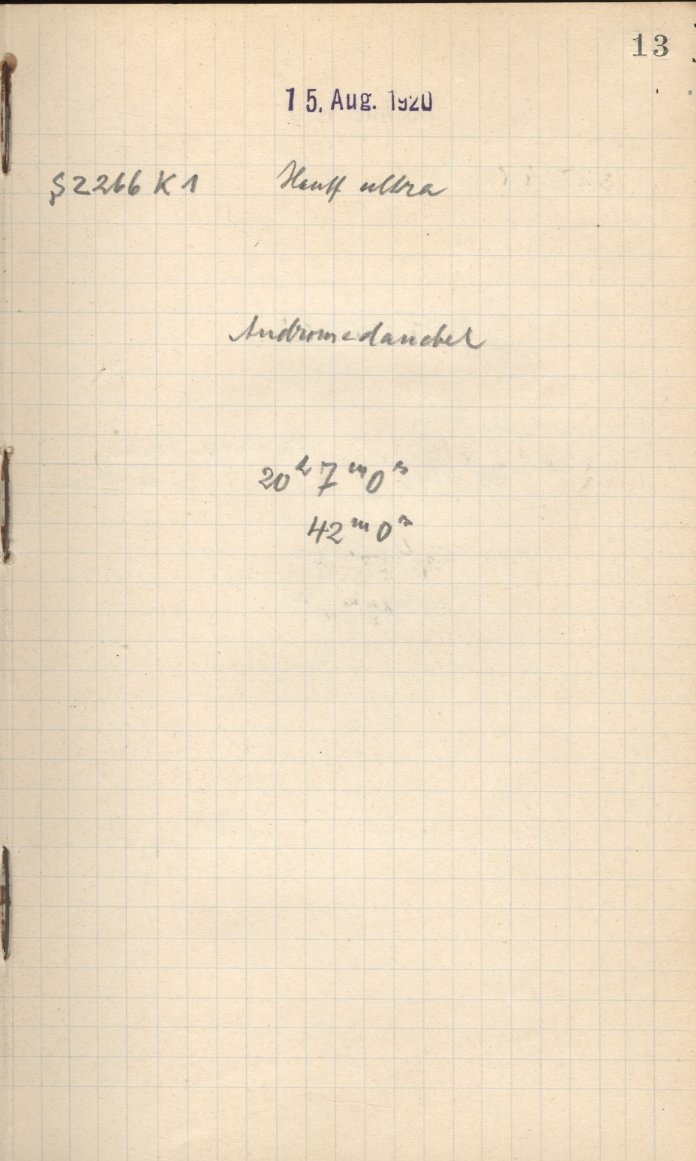 13
15. Aug. 1920
SZ266 K1 Hauff ultra
Andromedanebel
20ʰ 7ᵐ 0ˢ
42ᵐ 0ˢ